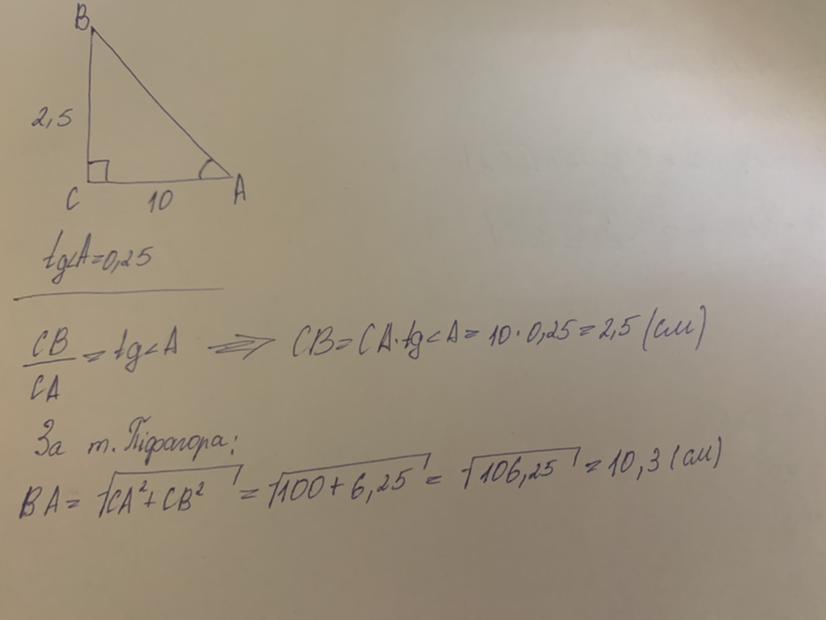 B
2,5
C
10
A
tg<A=0,25
CB/CA = tg<A => CB=CA·tg<A=10·0,25=2,5(см)
За т. Піфагора:
BA=√CA²+CB² = √100+6,25 = √106,25 = 10,3(см)